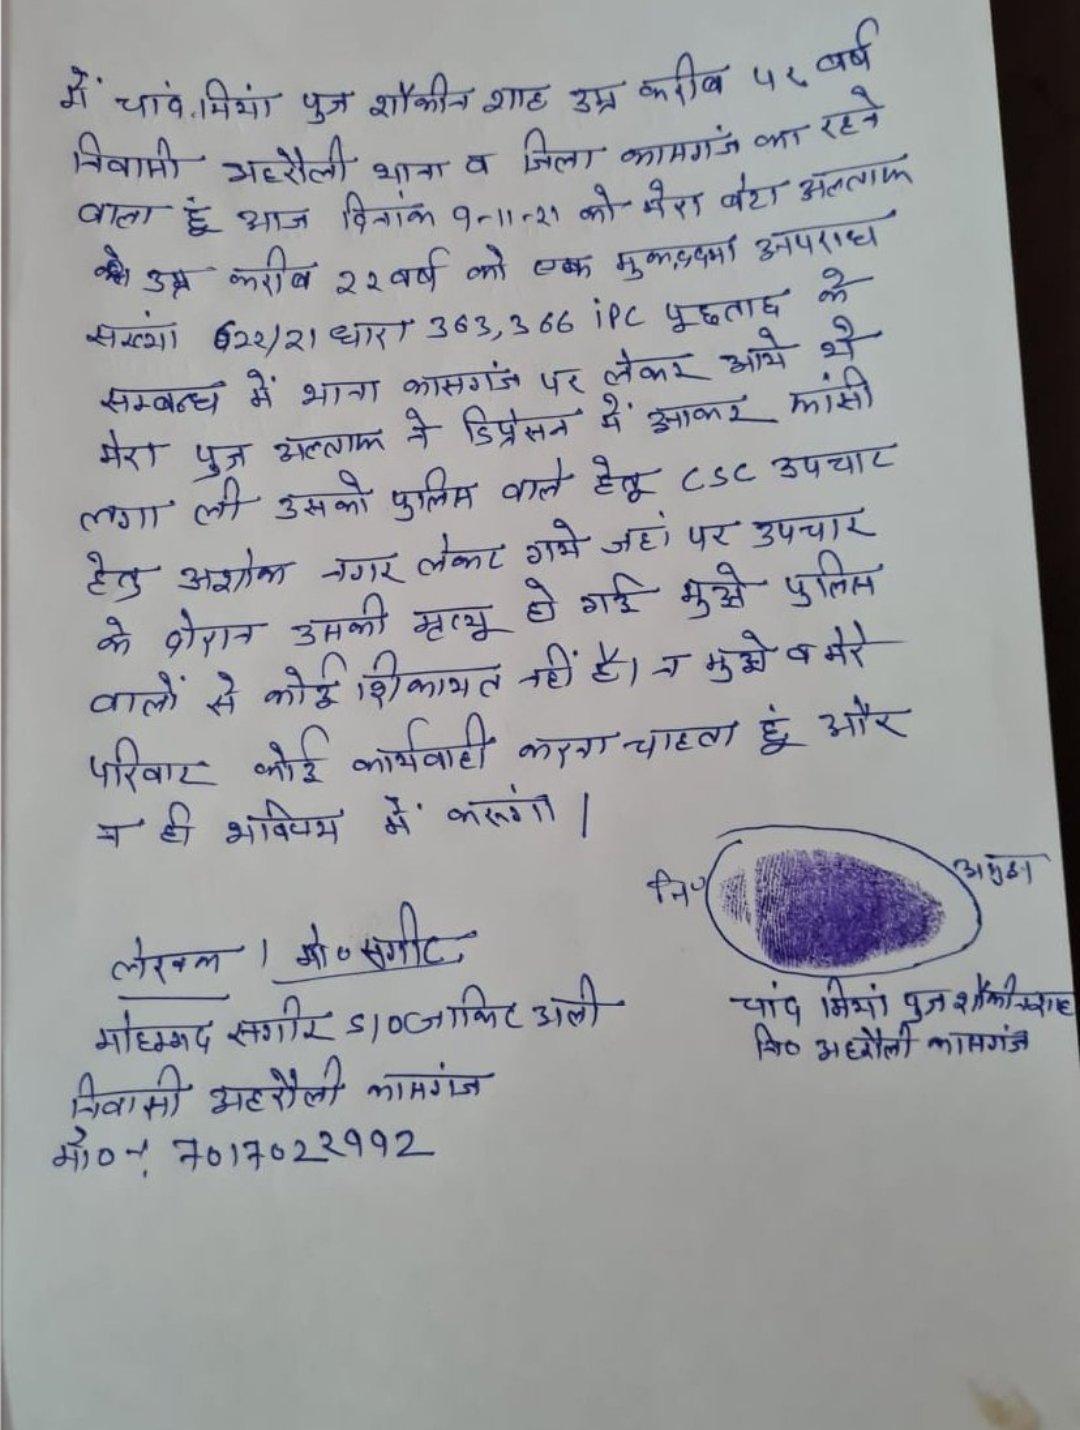 में चांद मियां पुत्र शौकीन शाह उम्र करीब ५२ वर्ष
निवासी अहरौली थाना व जिला कासगंज का रहने
वाला हूं आज दिनांक ९-११-२१ को मेरा बेटा अल्ताफ
उम्र करीब २२ वर्ष को एक मुकद्दमा अपराध
सख्यां 622/21 धारा 363, 366 iPC पूछताछ के
सम्बन्ध में थाना कासगंज पर लेकर आये थे
मेरा पुत्र अल्ताफ ने डिप्रेसन में आकर फांसी
लगा ली उसको पुलिस वाले हेतू CSC उपचार
हेतु अशोक नगर लेकर गये जहां पर उपचार
के दोरान उसकी मृत्यू हो गई मुझे पुलिस
वालों से कोई शिकायत नहीं है। न मुझे व मेरे
परिवार कोई कार्यवाही करना चाहता हूं और
न ही भविषय में करूंगा।
नि० अगुंठा
लेखक । मो० सगीर
चांद मियां पुत्र शौकीन शाह
मोहम्मद सगीर S/O जाकिर अली
नि० अहरौली कासगंज
निवासी अहरौली कासगंज
मो० न. 7017022992